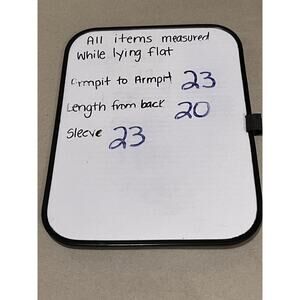 All items measured
while lying flat
Armpit to Armpit 23
Length from back 20
Sleeve 23